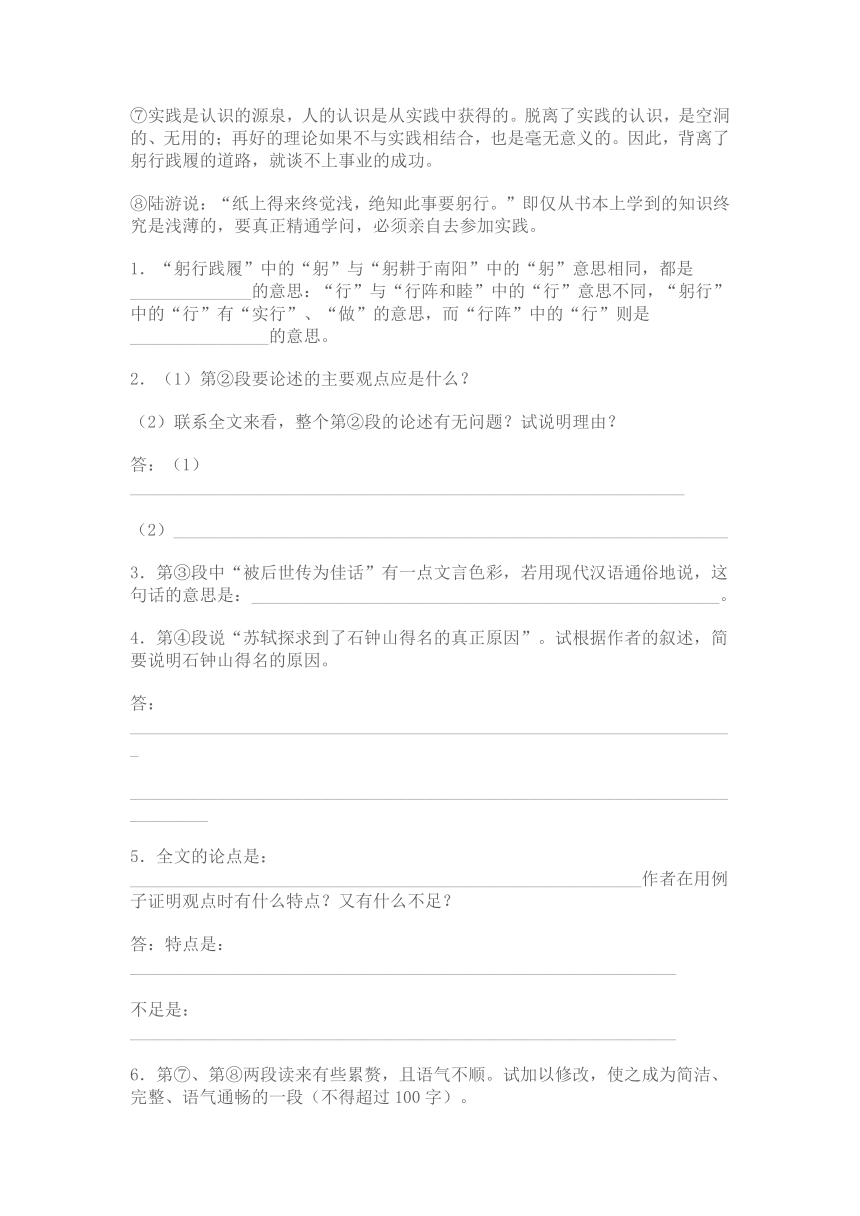 ⑦实践是认识的源泉，人的认识是从实践中获得的。脱离了实践的认识，是空洞
的、无用的；再好的理论如果不与实践相结合，也是毫无意义的。因此，背离了
躬行践履的道路，就谈不上事业的成功。
⑧陆游说：“纸上得来终觉浅，绝知此事要躬行。”即仅从书本上学到的知识终
究是浅薄的，要真正精通学问，必须亲自去参加实践。
1．“躬行践履”中的“躬”与“躬耕于南阳”中的“躬”意思相同，都是
______________的意思：“行”与“行阵和睦”中的“行”意思不同，“躬行”
中的“行”有“实行”、“做”的意思，而“行阵”中的“行”则是
________________的意思。
2．（1）第②段要论述的主要观点应是什么？
（2）联系全文来看，整个第②段的论述有无问题？试说明理由？
答：（1）
________________________________________________________________
（2）________________________________________________________________
3．第③段中“被后世传为佳话”有一点文言色彩，若用现代汉语通俗地说，这
句话的意思是：______________________________________________________。
4．第④段说“苏轼探求到了石钟山得名的真正原因”。试根据作者的叙述，简
要说明石钟山得名的原因。
答：
_____________________________________________________________________
_
_____________________________________________________________________
_________
5．全文的论点是：
___________________________________________________________作者在用例
子证明观点时有什么特点？又有什么不足？
答：特点是：
_______________________________________________________________
不足是：
_______________________________________________________________
6．第⑦、第⑧两段读来有些累赘，且语气不顺。试加以修改，使之成为简洁、
完整、语气通畅的一段（不得超过100字）。